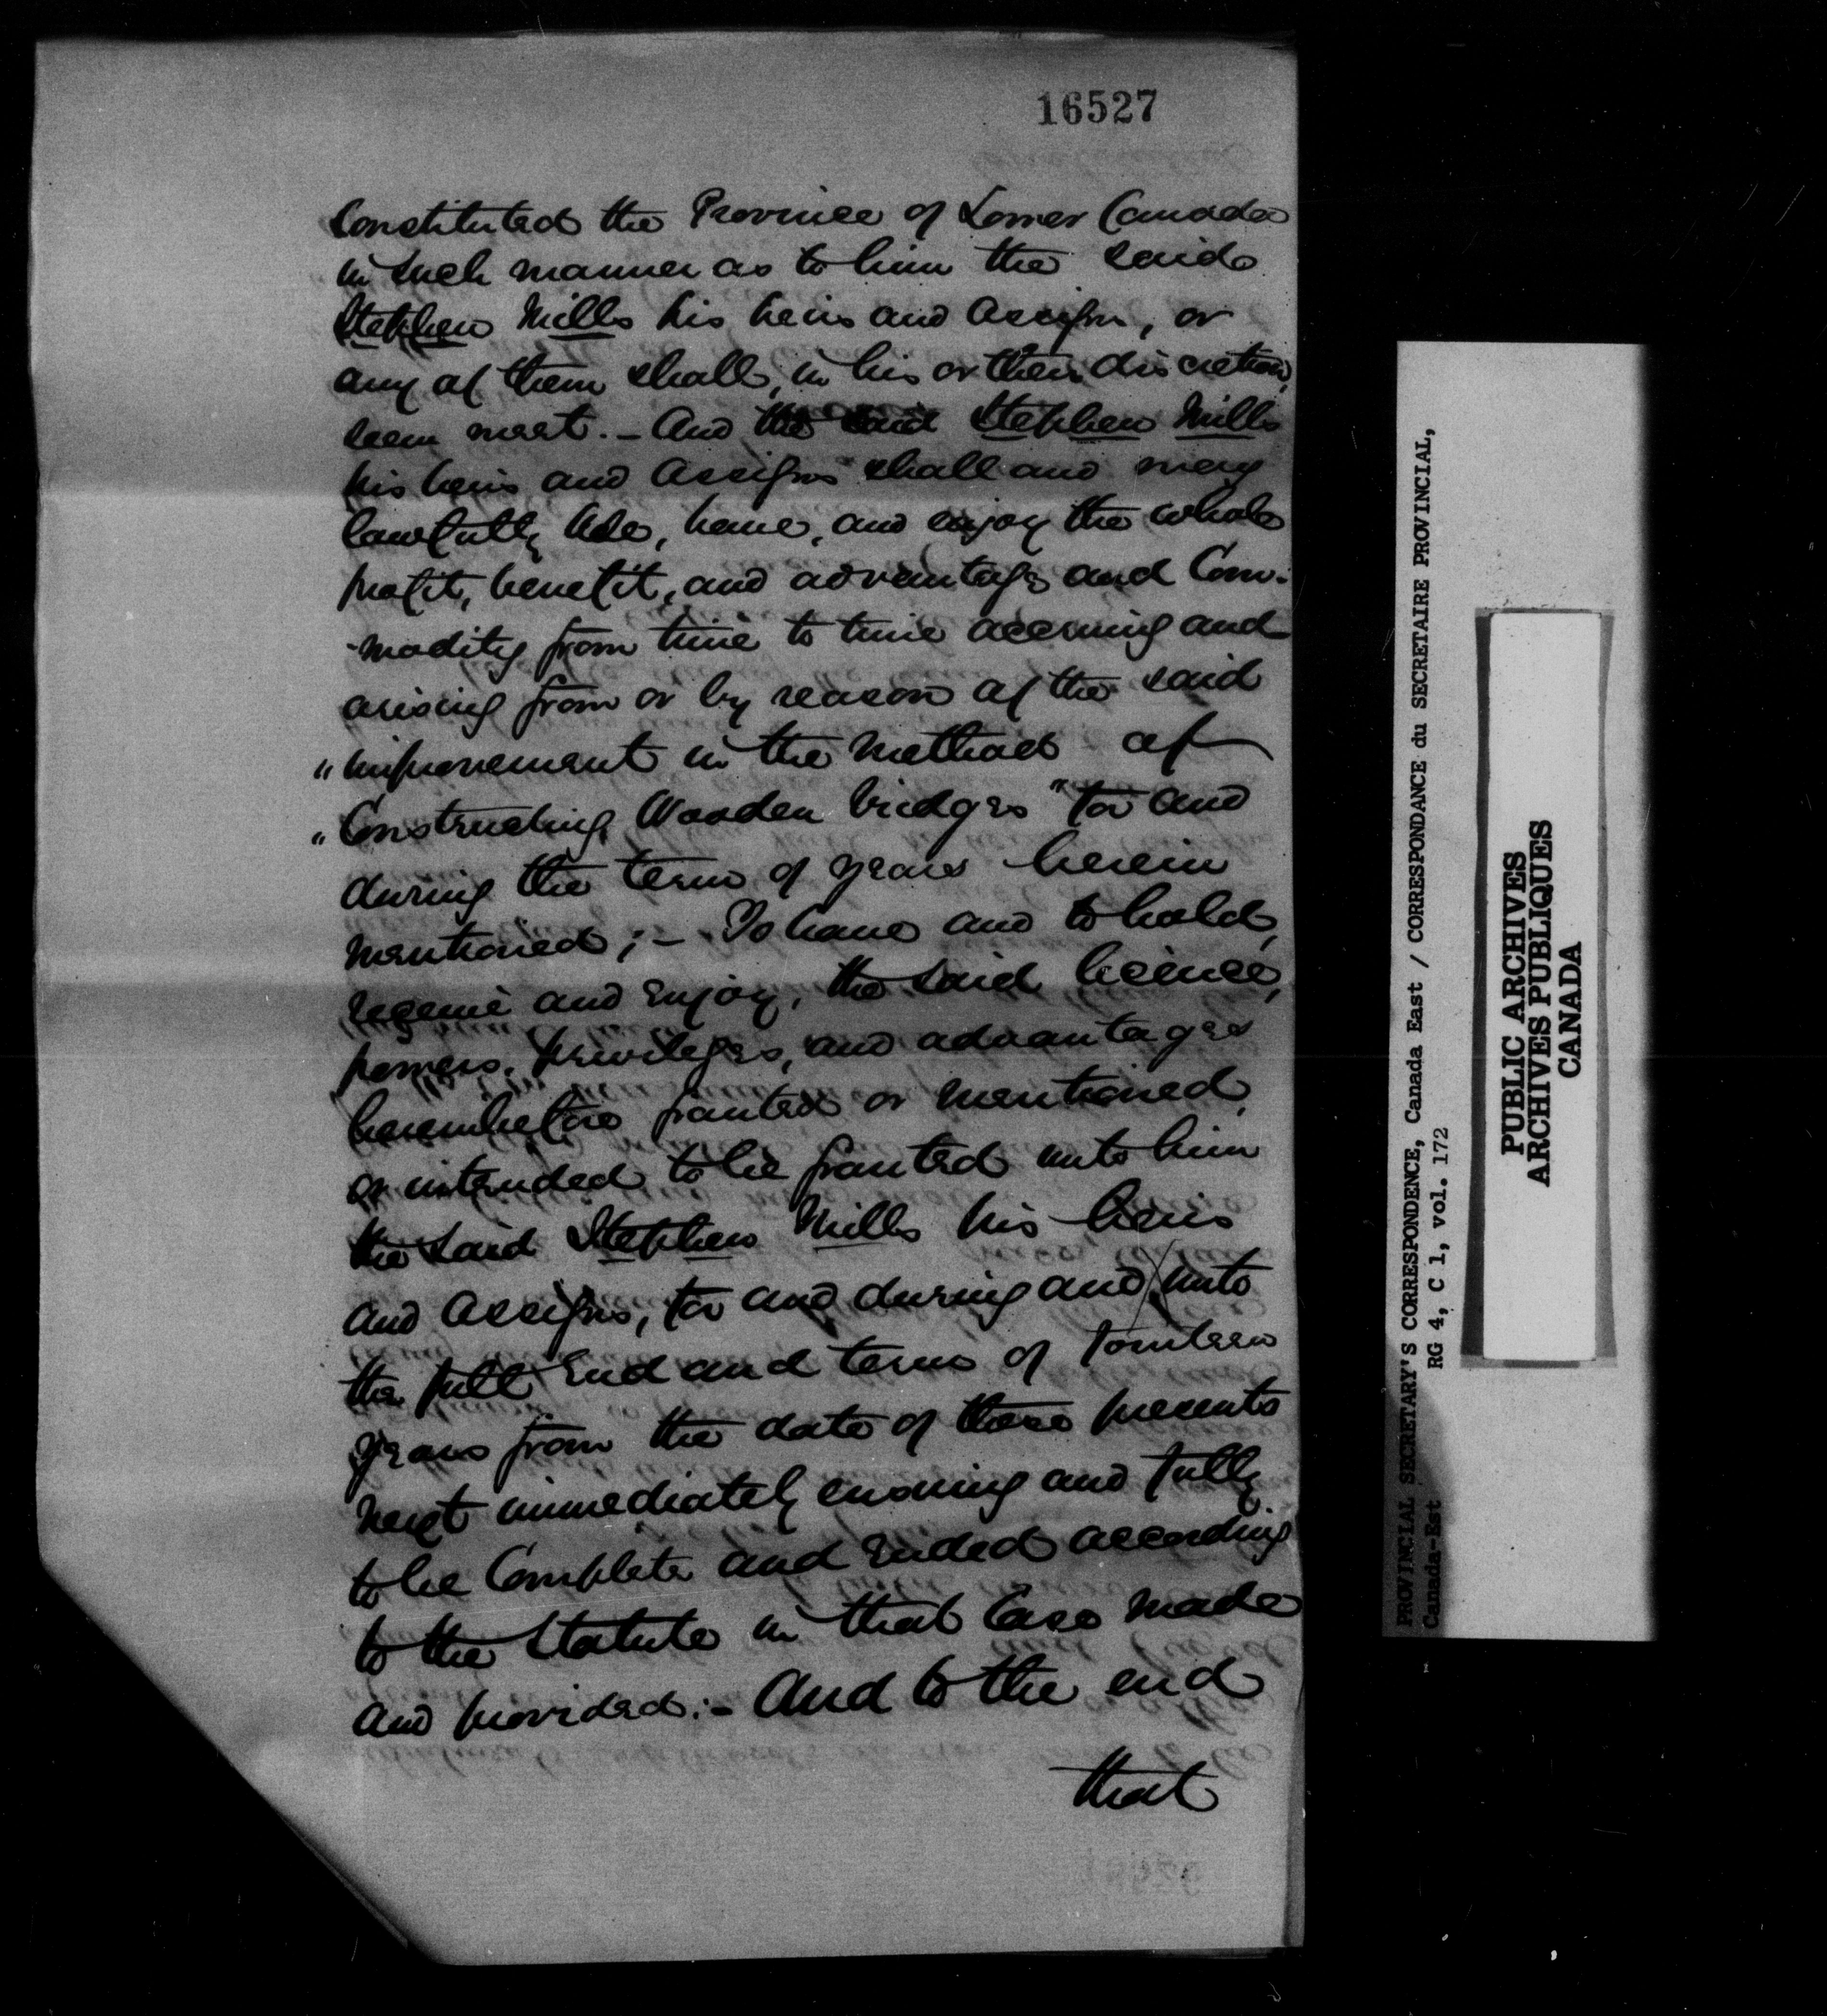 16527
Constituted the Province of Lower Canada
in such manner as to him the said
Stephen Mills his heirs and assigns, or
any of them shall, in his or their discretion,
seem meet. - And the said Stephen Mills
his heirs and assigns shall and may
lawfully use, have, and enjoy the whole
profit, benefit, and advantage and Com-
-modity from time to time accruing and
arising from or by reason of the said
"improvement in the method of
"Constructing Wooden bridges" for and
during the term of years herein
mentioned; - To have and to hold,
receive and enjoy, the said licence,
powers, privileges, and advantages
hereinbefore granted or mentioned,
or intended to be granted unto him
the said Stephen Mills his heirs
and assigns, for and during and unto
the full end and term of fourteen
years from the date of these presents
next immediately ensuing and fully
to be Complete and ended according
to the Statute in that Case made
and provided: - And to the end
that
PROVINCIAL SECRETARY'S CORRESPONDENCE, Canada East / CORRESPONDANCE du SECRETAIRE PROVINCIAL,
Canada-Est RG 4, C 1, vol. 172
PUBLIC ARCHIVES
ARCHIVES PUBLIQUES
CANADA